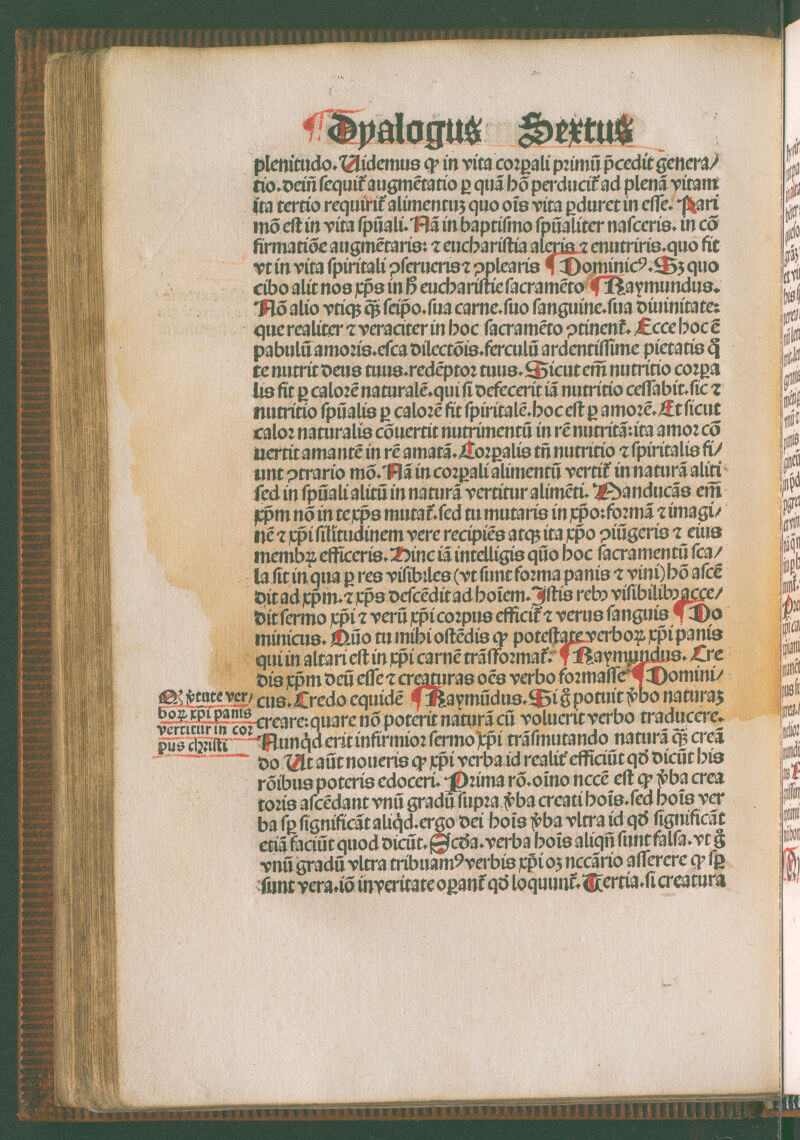 ¶ Dyalogus Sextus
plenitudo. Uidemus ꝙ in vita coꝛꝑali pꝛimū p̄cedit genera⸗
tio. dein̄ ſequit᷑ augmētatio ꝑ quā hō perducit᷑ ad plenā vitam
ita tertio requirit᷑ alimentuꝫ quo oīs vita ꝑduret in eſſe. Pari
mō eſt in vita ſpūali. Nā in baptiſmo ſpūaliter naſceris. in cō
firmatiōe augmētaris: ⁊ euchariſtia aleris ⁊ enutriris. quo fit
vt in vita ſpiritali ꝯſerueris ⁊ ꝯplearis ¶ Dominicꝰ. Sꝫ quo
cibo alit nos xp̄s in h̄ euchariſtie ſacramēto ¶ Raymundus.
Nō alio vtiqꝫ q̄ꝫ ſeip̄o. ſua carne. ſuo ſanguine. ſua diuinitate:
que realiter ⁊ veraciter in hoc ſacramēto ꝯtinent᷑. Ecce hoc ē
pabulū amoꝛis. eſca dilectōis. ferculū ardentiſſime pietatis q̄
te nutrit deus tuus. redēptoꝛ tuus. Sicut em̄ nutritio coꝛꝑa
lis fit ꝑ caloꝛē naturalē. qui ſi defecerit iā nutritio ceſſabit. ſic ⁊
nutritio ſpūalis ꝑ caloꝛē fit ſpiritalē. hoc eſt ꝑ amoꝛē. Et ſicut
caloꝛ naturalis cōuertit nutrimentū in rē nutritā: ita amoꝛ cō
uertit amantē in rē amatā. Coꝛꝑalis tn̄ nutritio ⁊ ſpiritalis fi⸗
unt ꝯtrario mō. Nā in coꝛꝑali alimentū vertit᷑ in naturā aliti
ſed in ſpūali alitū in naturā vertitur alimēti. Manducās em̄
xp̄m nō in te xp̄s mutat᷑. ſed tu mutaris in xp̄o: foꝛmā ⁊ imagi⸗
nē ⁊ xp̄i ſilitudinem vere recipiēs atqꝫ ita xp̄o ꝯiūgeris ⁊ eius
membꝝ efficeris. Hinc iā intelligis quō hoc ſacramentū ſca⸗
la ſit in qua ꝑ res viſibiles (vt ſunt foꝛma panis ⁊ vini) hō aſcē
dit ad xp̄m. ⁊ xp̄s deſcēdit ad hoīem. Iſtis rebꝫ viſibilibꝫ acce⸗
dit ſermo xp̄i ⁊ verū xp̄i coꝛpus efficit᷑ ⁊ verus ſanguis ¶ Do
minicus. Quō tu mihi oſtēdis ꝙ poteſtate verboꝝ xp̄i panis
qui in altari eſt in xp̄i carnē trāſfoꝛmat᷑. ¶ Raymundus. Cre
dis xp̄m deū eſſe ⁊ creaturas oēs verbo foꝛmaſſe ¶ Domini⸗
cus. Credo equidē ¶ Raymūdus. Si g̊ potuit v̄bo naturaꝫ
creare: quare nō poterit naturā cū voluerit verbo traducere.
Nunqͥd erit infirmioꝛ ſermo xp̄i trāſmutando naturā q̄ꝫ creā
do Ut aūt noueris ꝙ xp̄i verba id realit᷑ efficiūt qd̄ dicūt his
rōibus poteris edoceri. Pꝛima rō. oīno nccē eſt ꝙ v̄ba crea
toꝛis aſcēdant vnū gradū ſupꝛa v̄ba creati hoīs. ſed hoīs ver
ba ſꝑ ſignificāt aliqͥd. ergo dei hoīs v̄ba vltra id qd̄ ſignificāt
etiā faciūt quod dicūt. Scd̄a. verba hoīs aliqn̄ ſunt falſa. vt g̊
vnū gradū vltra tribuamꝰ verbis xp̄i oꝫ nccārio aſſerere ꝙ ſꝑ
ſunt vera. iō in veritate oꝑant᷑ qd̄ loquunt᷑. Tertia. ſi creatura
Qꝫ v̄tute ver⸗
boꝝ xp̄i panis
vertitur in coꝛ
pus chꝛiſti